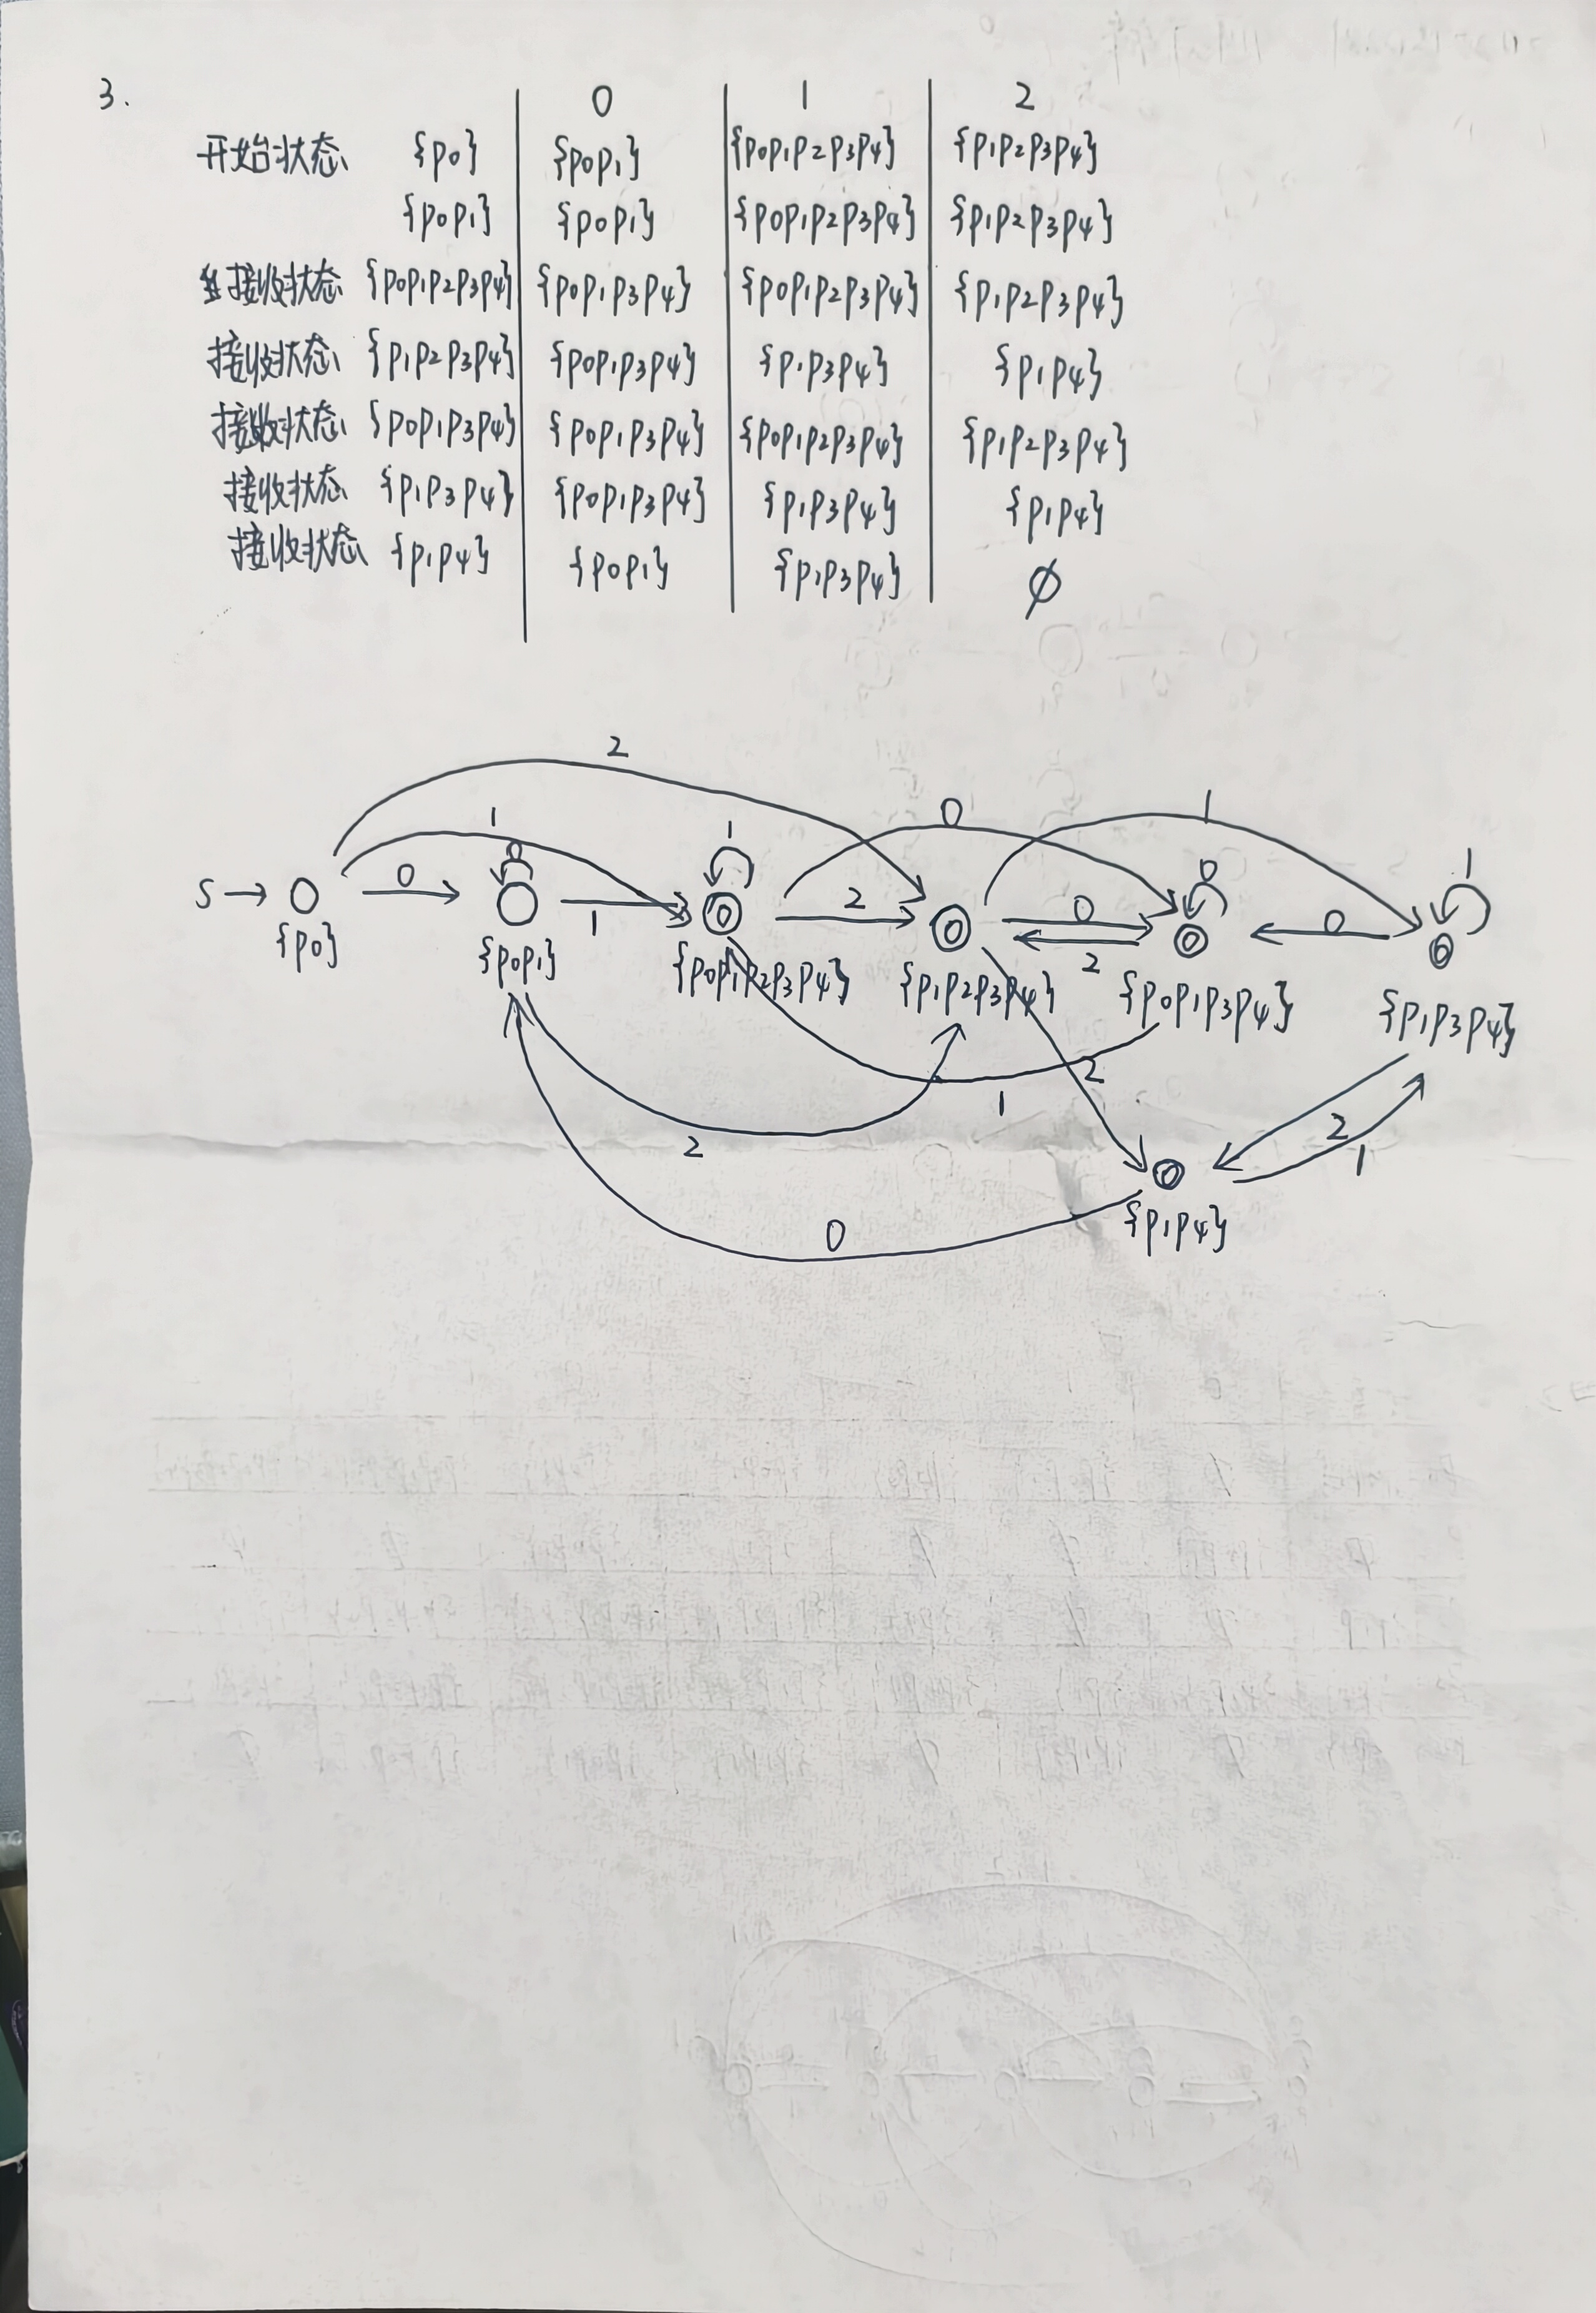 3.
0 1 2
开始状态 {p0} {p0p1} {p0p1p2p3p4} {p1p2p3p4}
{p0p1} {p0p1} {p0p1p2p3p4} {p1p2p3p4}
接收状态 {p0p1p2p3p4} {p0p1p3p4} {p0p1p2p3p4} {p1p2p3p4}
接收状态 {p1p2p3p4} {p0p1p3p4} {p1p3p4} {p1p4}
接收状态 {p0p1p3p4} {p0p1p3p4} {p0p1p2p3p4} {p1p2p3p4}
接收状态 {p1p3p4} {p0p1p3p4} {p1p3p4} {p1p4}
接收状态 {p1p4} {p0p1} {p1p3p4} ∅
2
1 0 1 0 1 0 1
S 0 1 2 0 2 0
{p0} {p0p1} {p0p1p2p3p4} {p1p2p3p4} {p0p1p3p4} {p1p3p4}
2 1 2 2 1
0 {p1p4}